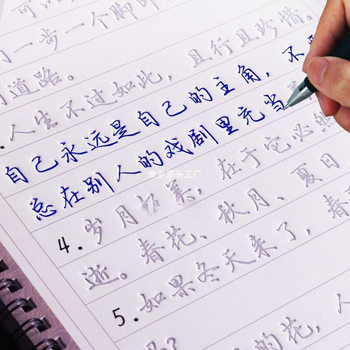 可以
一步一个脚印
道路。
人生不过如此，且行且珍惜。
自己永远是自己的主角，不
总在别人的戏剧里充当
4.岁月 在于它必然
逝。春花、秋月、夏日
5.如果冬天来了，春
的花，人